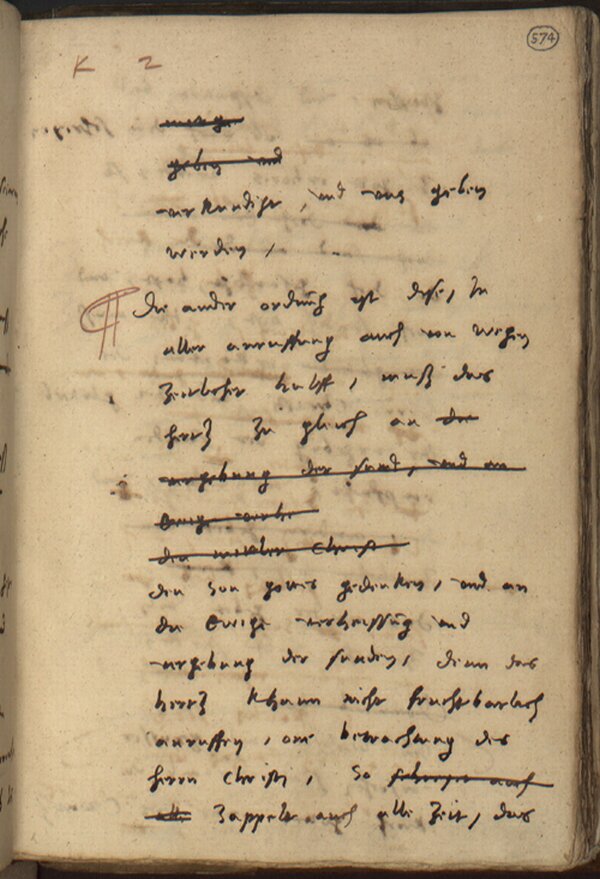 574
K 2
geben und
verkundiget, und uns geben
werden,
¶ Die ander ordnung ist dise, In
aller anruffung auch von wegen
zeitlicher hulff, muß das
hertz zu gleich an die
vergebung der sund, und an
Ewige
den mittler Christ
den Son gottes gedenken, und an
die Ewige verheissung und
vergebung der sunden, denn das
hertz khann nicht fruchtbarlich
anruffen, one betrachtung des
herrn Christi, So auch
alle zappelt auch alle zeit, das